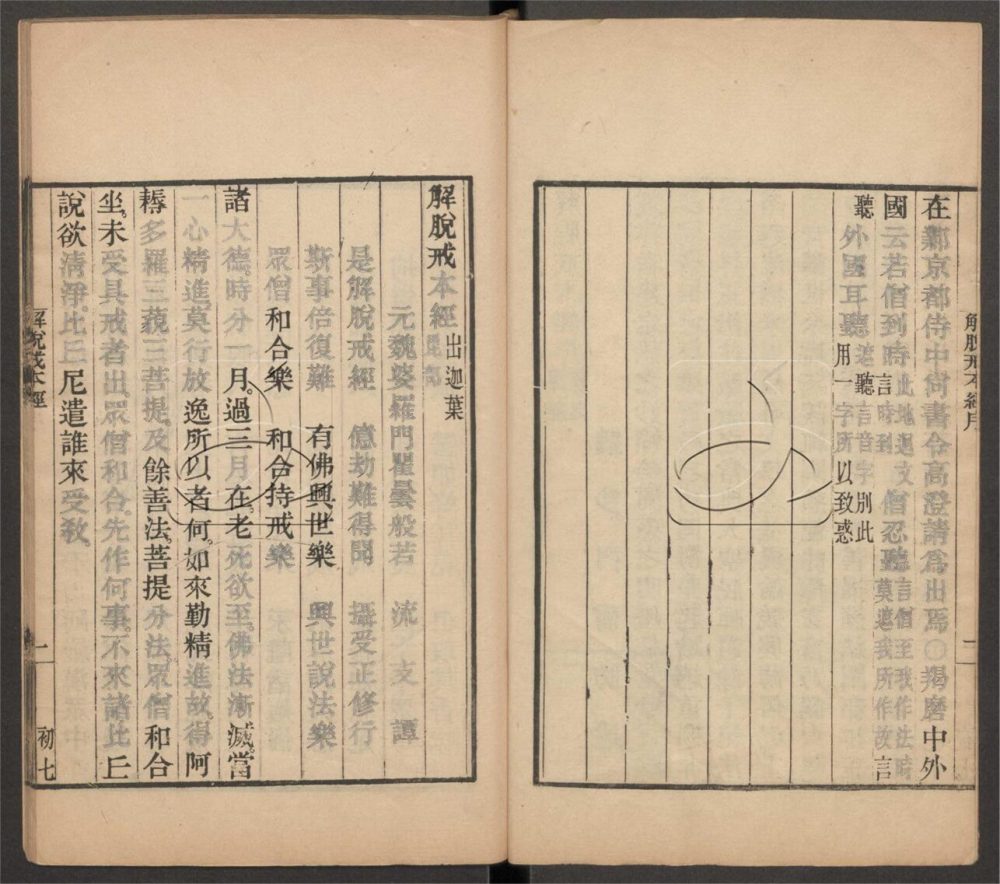 解脫戒本經序
二
在鄴京都侍中尚書令高澄請爲出焉〇羯磨中外
國云若僧到時此地迴文言時到僧忍聽言僧至我作法時莫遮我所作故言
聽外國耳聽遮聽言音字別此用一字所以致惑
解脫戒本經出迦葉
元魏婆羅門瞿曇般若流支譯
是解脫戒經 億劫難得聞 攝受正修行
斯事倍復難 有佛興世樂 興世說法樂
眾僧和合樂 和合持戒樂
諸大德。時分一月。過三月在。老死欲至。佛法漸滅。當
一心精進。莫行放逸所以者何。如來勤精進故。得阿
耨多羅三藐三菩提。及餘善法。菩提分法。眾僧和合
坐。未受具戒者出。眾僧和合。先作何事。不來諸比丘
說欲清淨。比丘尼遣誰來受敎。
解脫戒本經
二
初七